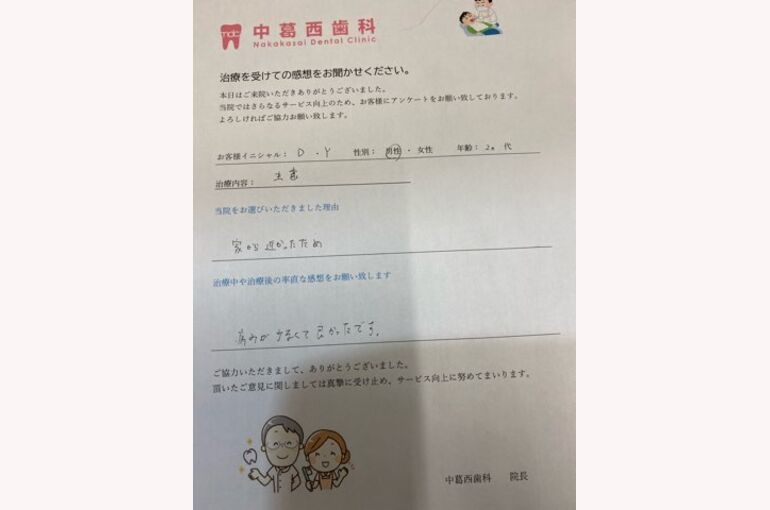 ndc 中葛西歯科
Nakakasai Dental Clinic
治療を受けての感想をお聞かせください。
本日はご来院いただきありがとうございました。
当院ではさらなるサービス向上のため、お客様にアンケートをお願い致しております。
よろしければご協力お願い致します。
お客様イニシャル： D . Y 性別： 男性 ・ 女性 年齢： 20 代
治療内容：
当院をお選びいただきました理由
家から近かったため
治療中や治療後の率直な感想をお願い致します
痛みが少なくて良かったです。
ご協力いただきまして、ありがとうございました。
頂いたご意見に関しましては真摯に受け止め、サービス向上に努めてまいります。
中葛西歯科 院長